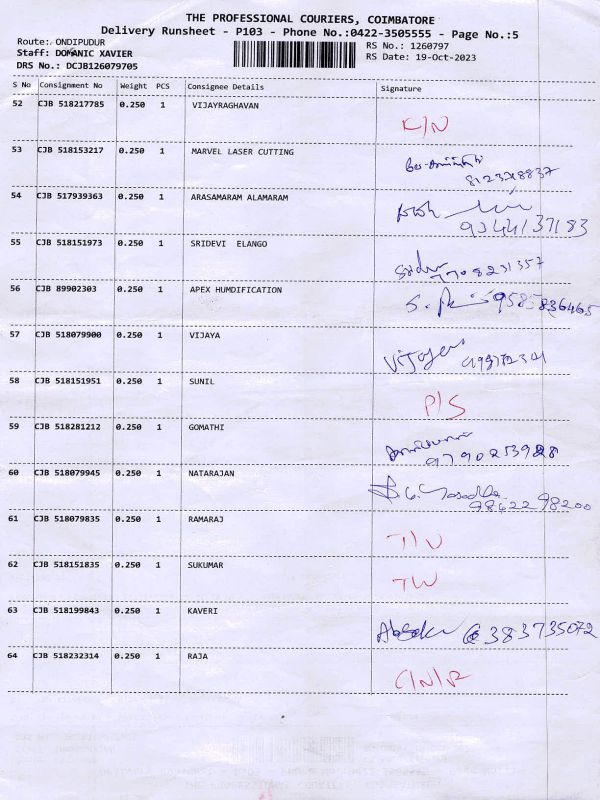 THE PROFESSIONAL COURIERS, COIMBATORE
Delivery Runsheet - P103 - Phone No.:0422-3505555 - Page No.:5
Route: ONDIPUDUR
RS No.: 1260797
Staff: DOMANIC XAVIER
RS Date: 19-Oct-2023
DRS No.: DCJB126079705
S No Consignment No Weight PCS Consignee Details Signature
52 CJB 518217785 0.250 1 VIJAYRAGHAVAN
53 CJB 518153217 0.250 1 MARVEL LASER CUTTING
54 CJB 517939363 0.250 1 ARASAMARAM ALAMARAM
9344137183
55 CJB 518151973 0.250 1 SRIDEVI ELANGO
56 CJB 89902303 0.250 1 APEX HUMDIFICATION
9585836465
57 CJB 518079900 0.250 1 VIJAYA
58 CJB 518151951 0.250 1 SUNIL
P/S
59 CJB 518281212 0.250 1 GOMATHI
9790253928
60 CJB 518079945 0.250 1 NATARAJAN
98422 98200
61 CJB 518079835 0.250 1 RAMARAJ
62 CJB 518151835 0.250 1 SUKUMAR
63 CJB 518199843 0.250 1 KAVERI
64 CJB 518232314 0.250 1 RAJA